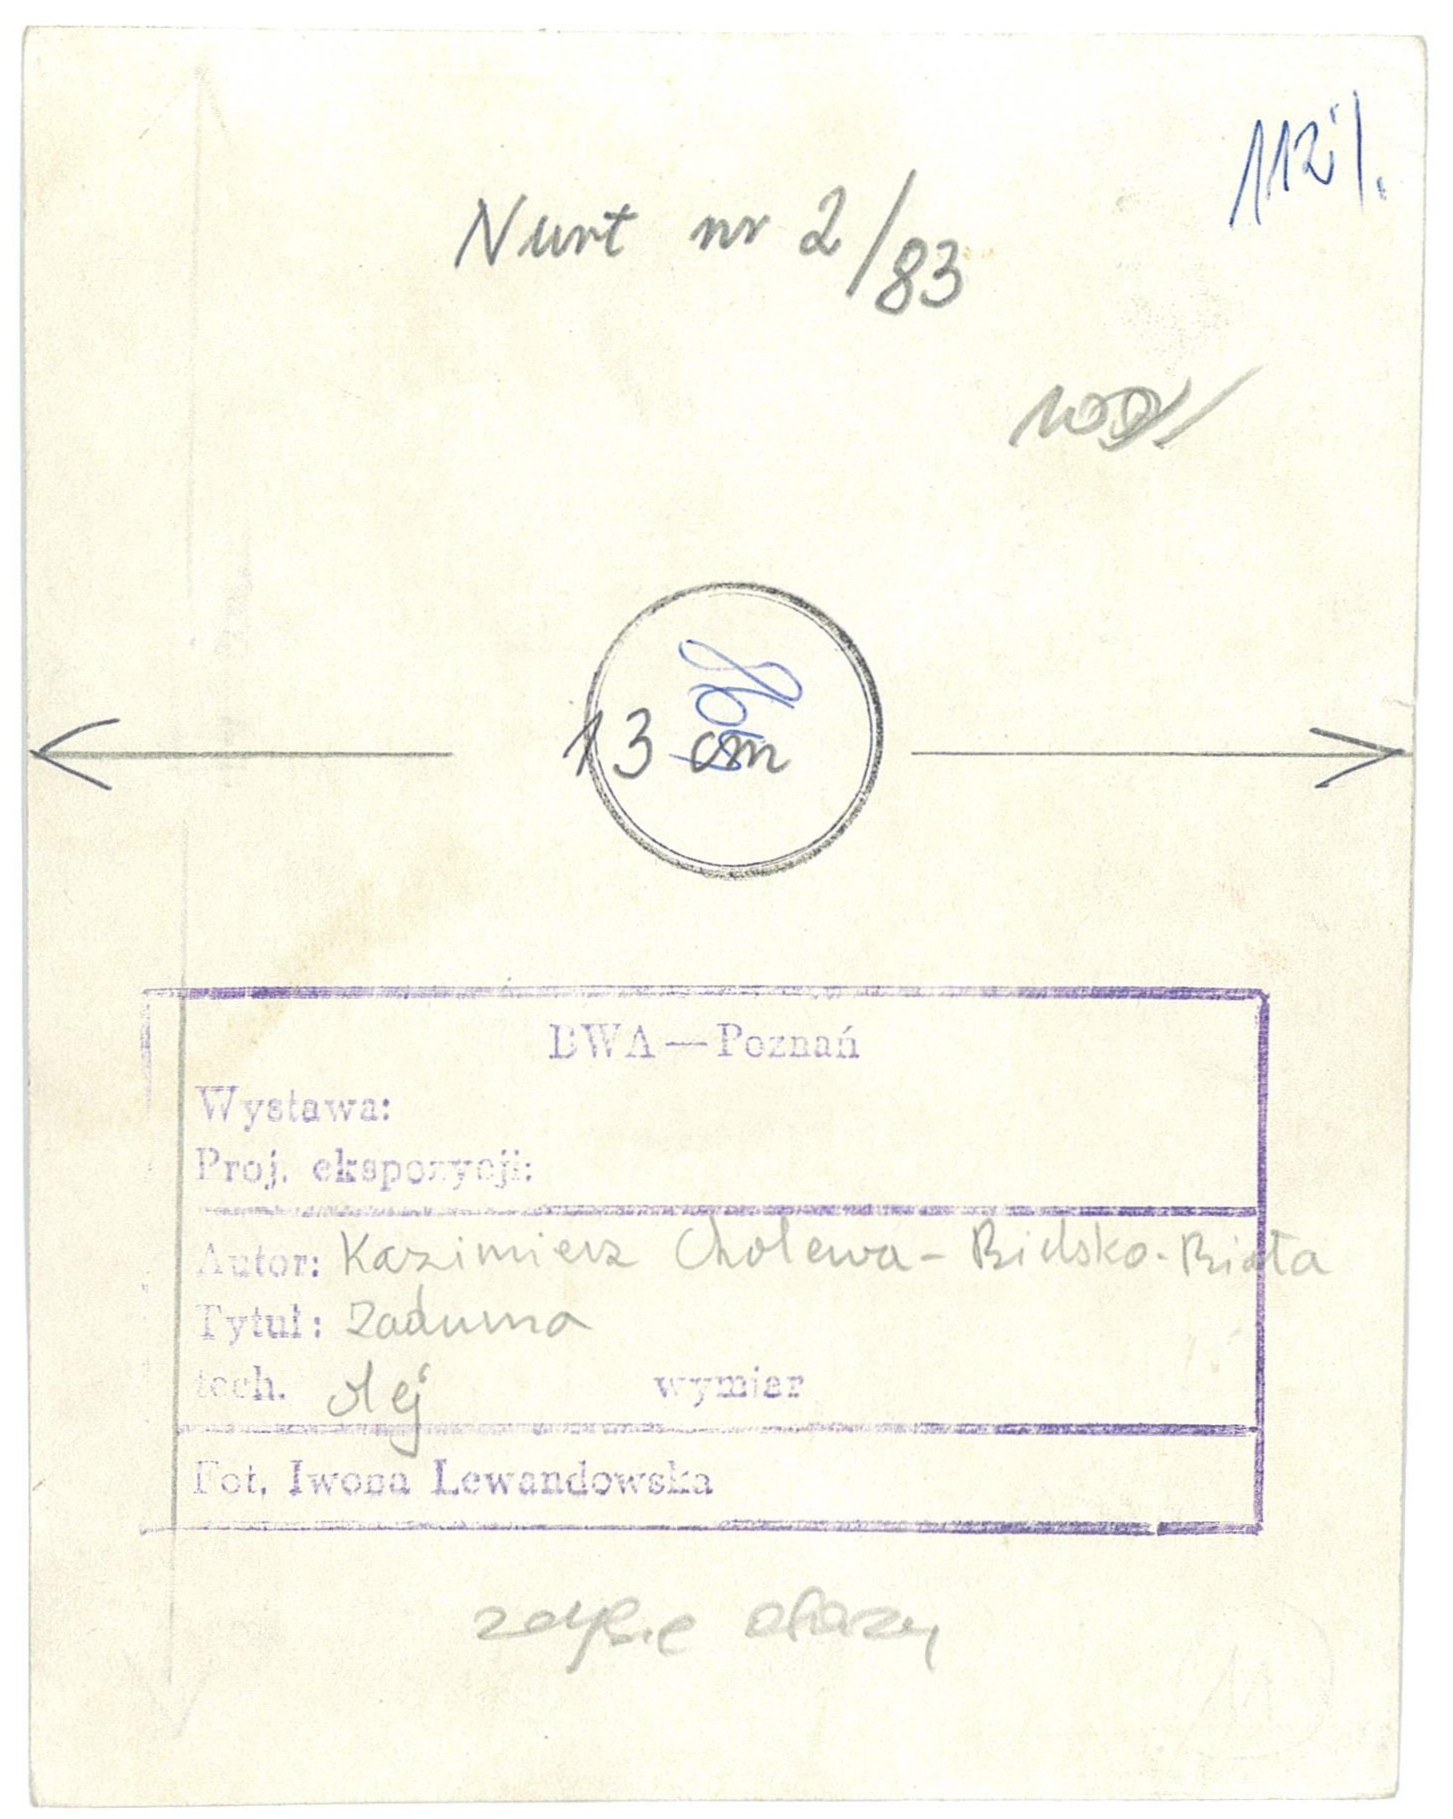 112%.
Nurt nr 2/83
100%
13 cm
BWA — Poznań
Wystawa:
Proj. ekspozycji:
Autor: Kazimierz Cholewa - Bielsko-Biała
Tytuł: Zaduma
tech. olej wymiar
Fot. Iwona Lewandowska